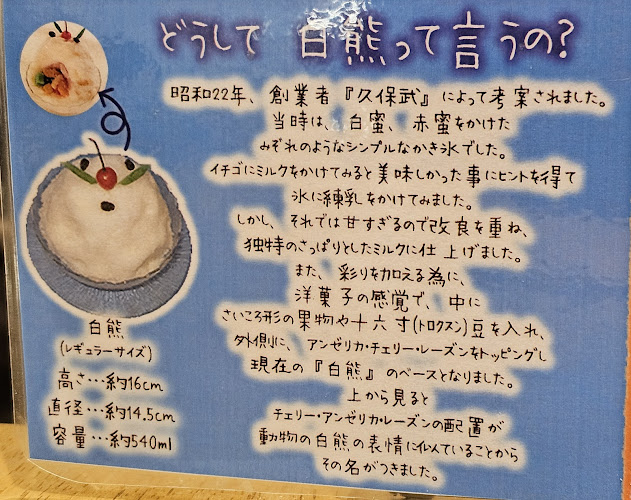 どうして 白熊って言うの?
昭和22年、創業者『久保武』によって考案されました。
当時は、白蜜、赤蜜をかけた
みぞれのようなシンプルなかき氷でした。
イチゴにミルクをかけてみると美味しかった事にヒントを得て
氷に練乳をかけてみました。
しかし、それでは甘すぎるので改良を重ね、
独特のさっぱりとしたミルクに仕上げました。
また、彩りを加える為に、
洋菓子の感覚で、中に
さいころ形の果物や十六寸(トロクスン)豆を入れ、
外側に、アンゼリカ・チェリー・レーズンをトッピングし
現在の『白熊』のベースとなりました。
上から見ると
チェリー・アンゼリカ・レーズンの配置が
動物の白熊の表情に似ていることから
その名がつきました。
白熊
(レギュラーサイズ)
高さ…約16cm
直径…約14.5cm
容量…約540ml